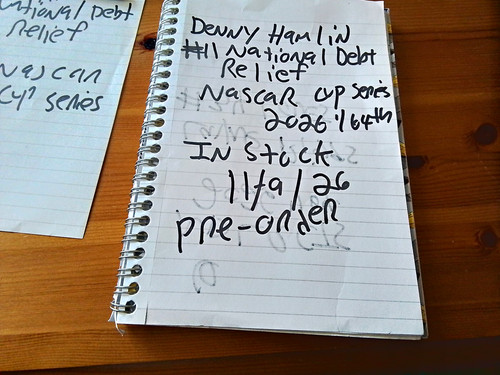 National Debt
Relief
Nascar
Cup series
Denny Hamlin
#11 National Debt
Relief
Nascar Cup Series
2026 1/64th
In Stock
11/9/26
pre-order